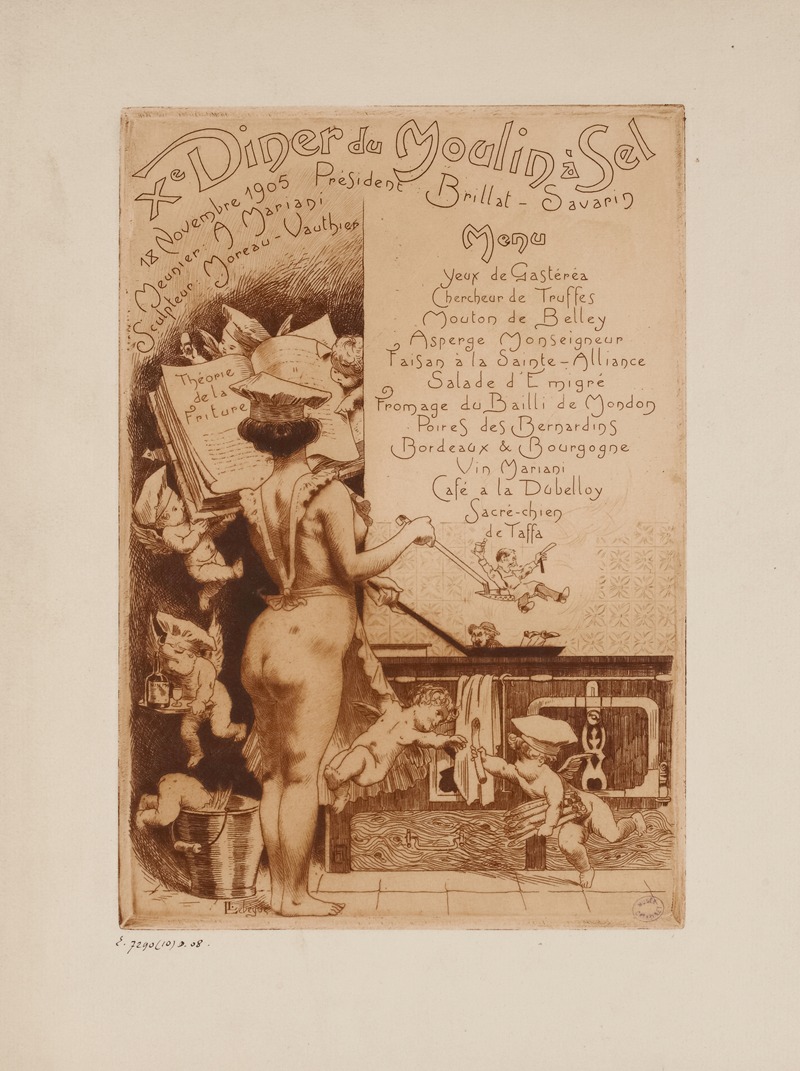 Xe Diner du Moulin à Sel
18 Novembre 1905 Président Brillat-Savarin
Meunier: A Mariani
Sculpteur Moreau-Vauthier
Menu
Yeux de Gastéréa
Chercheur de Truffes
Mouton de Belley
Asperge Monseigneur
Faisan à la Sainte-Alliance
Salade d'Emigré
Fromage du Bailli de Mondon
Poires des Bernardins
Bordeaux & Bourgogne
Vin Mariani
Café a la Dubelloy
Sacré-chien
de Taffa
Théorie
de la
Friture
E. 7290(10).08.